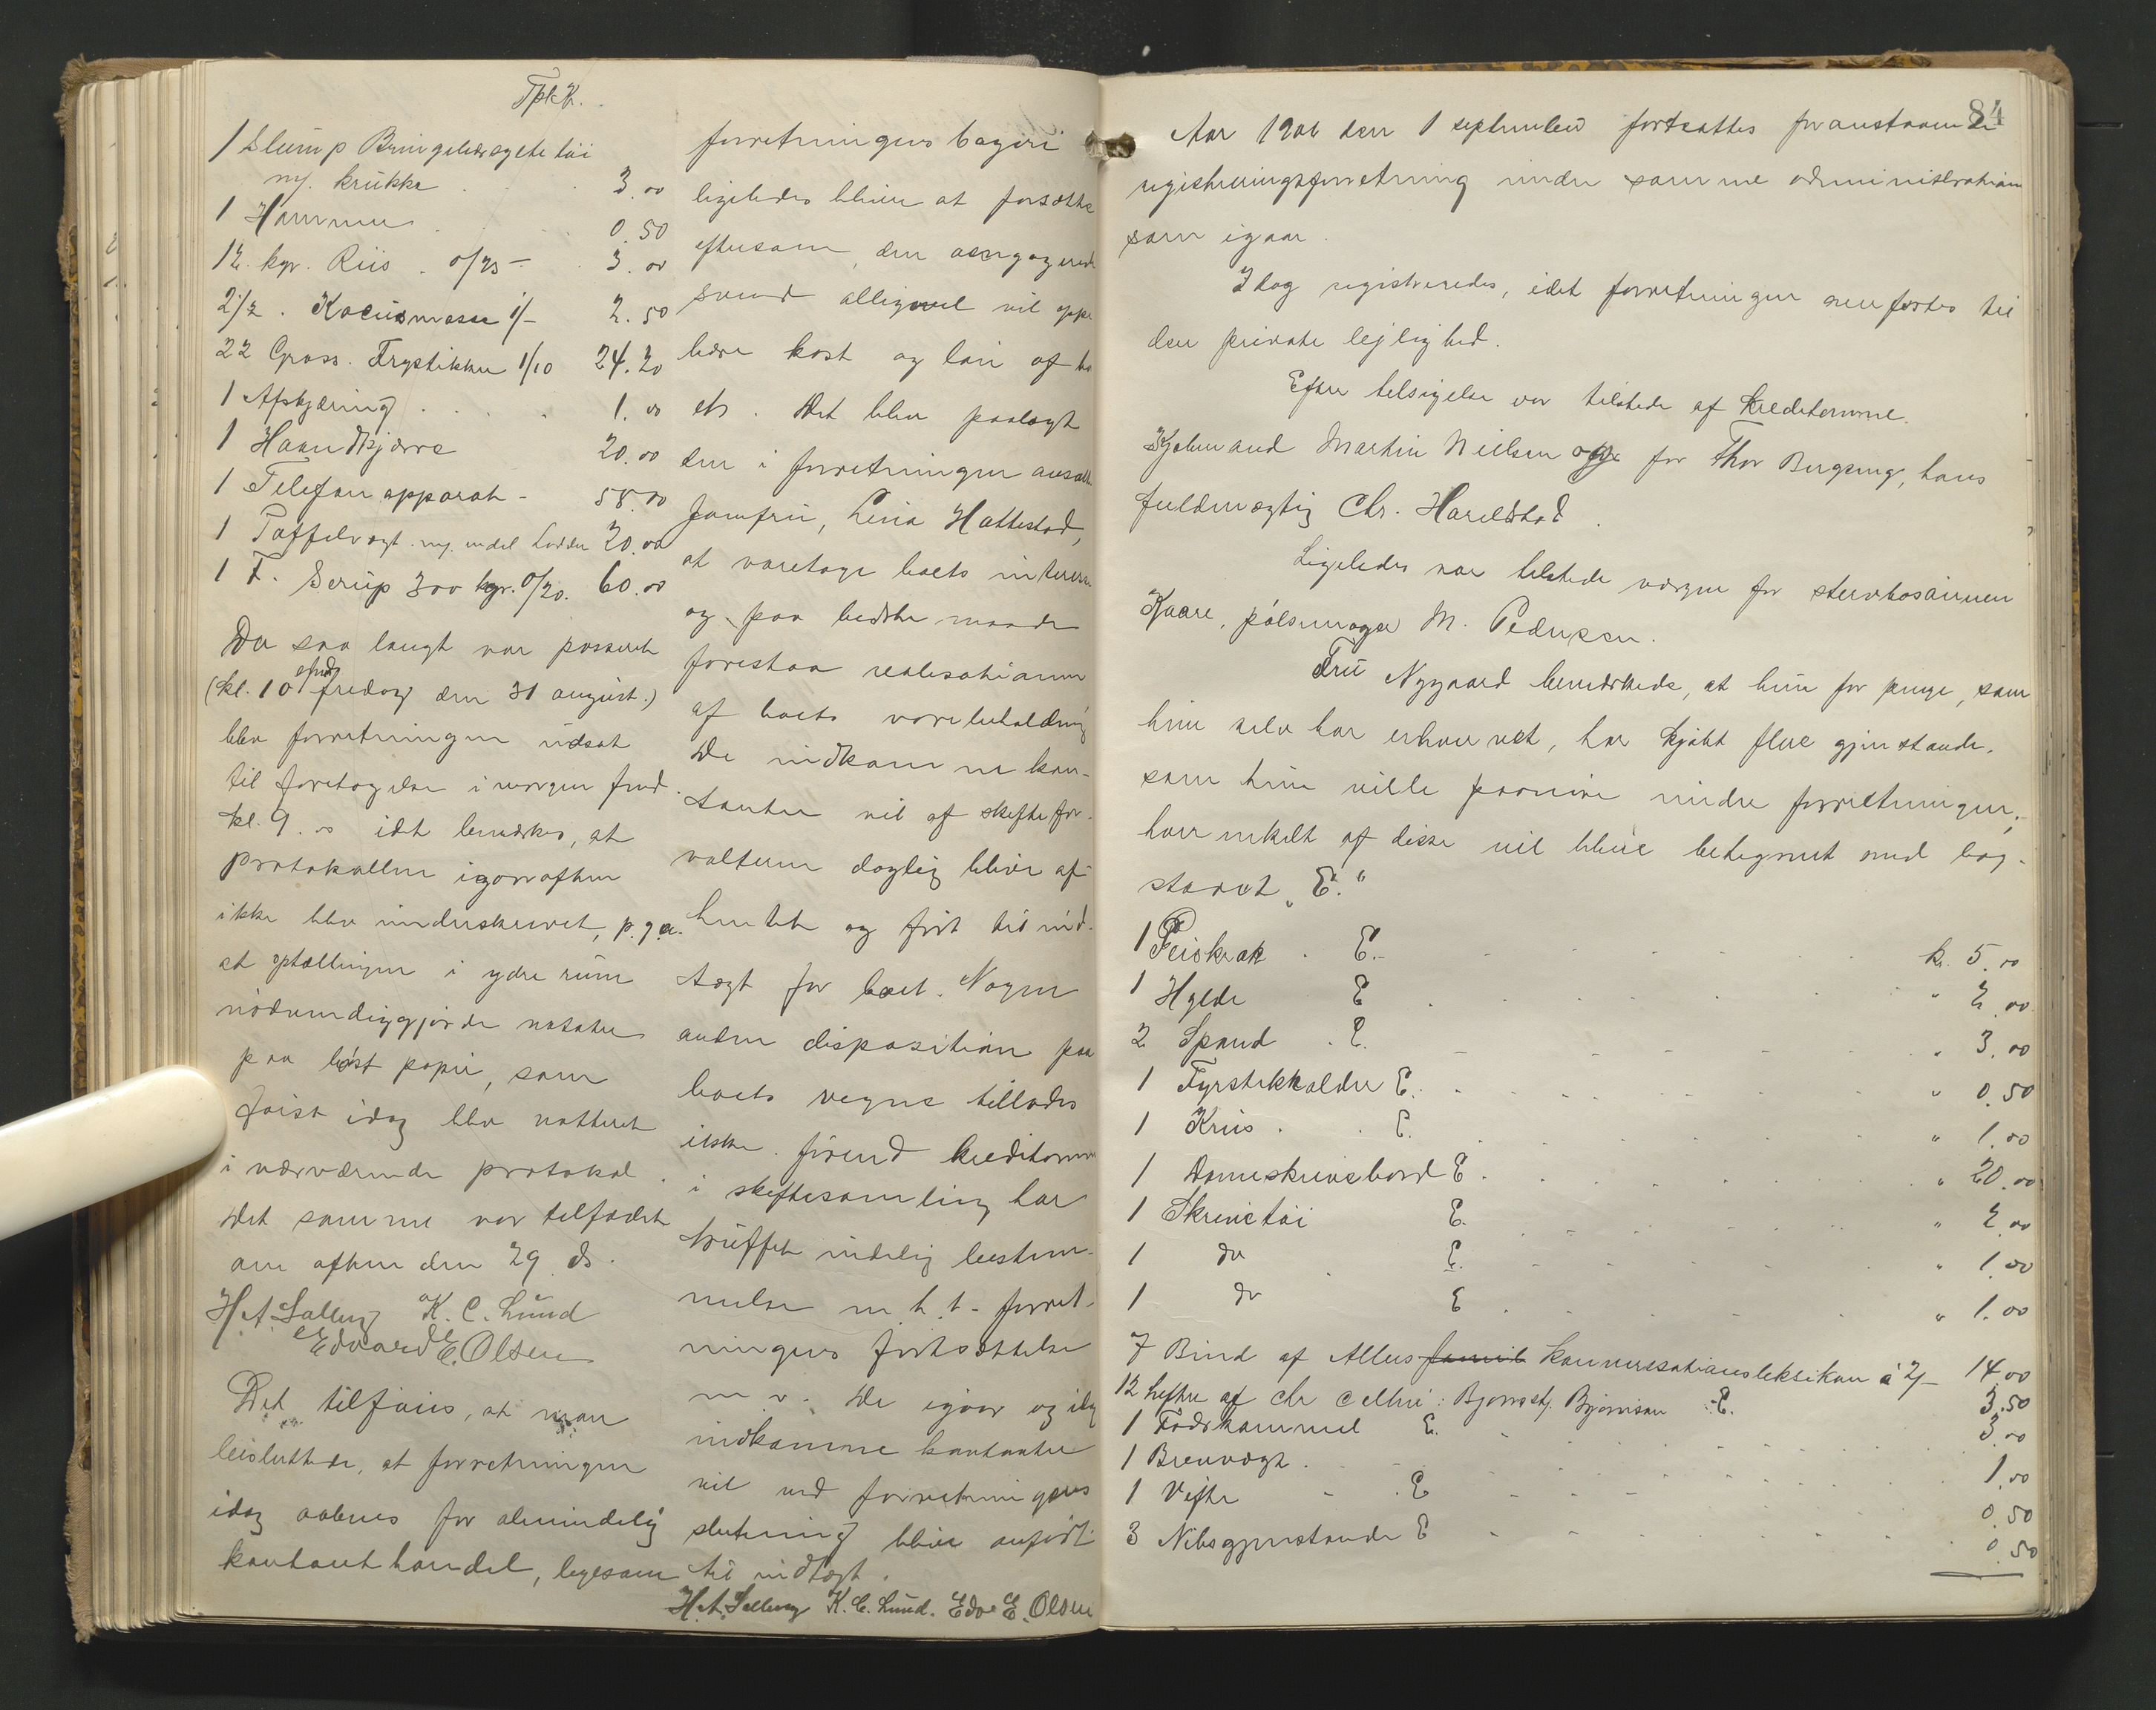 Tpk.
1 Slump Bringebærsylte tøi
m/. krukke 3.00
1 Hammer 0.50
12 kgr. Riis 0/25 - 3.00
2 1/2 . Kocusmasse 1/- 2.50
22 Gross. Frystikker 1/10 24.20
1 Afskjæring 1.00
1 Haandkjærre 20.00
1 Telefon apparat - 58.00
1 Taffelvægt m/. endel Lodder 20.00
1 F. Sirup 300 kgr. 0/20. 60.00
Da saa langt var passeret
(kl. 10 efmd fredag den 31 august.)
blev forretningen udsat
til foretagelse i morgen fmd.
kl. 9.00 idet bemærkes, at
protokollen igaaraften
ikke blev underskrevet, p.g.a.
at optællingen i ydre rum
nødvendiggjorde notater
paa løst papir, som
først idag blev notteret
i nærværende protokol.
Det samme var tilfældet
om aften den 29 ds.
H.A. Salberg K. C. Lund
Edvard E. Olsen
Det tilføies, at man
besluttede, at forretningen
idag aabnes for almindelig
kontant handel, ligesom
forretningens bageri
ligeledes bliver at forsætte
eftersom den engagerede
svend alligevel vil oppe
bære kost og løn af bo
ets. Det blev paalagt
den i forretningen ansatte
Jomfru, Lina Hattestad,
at varetage boets interesse
og paa bedste maade
forestaa realisationen
af boets varebeholdning
De indkomne kon-
tanter vil af skiftefor-
valteren daglig blive af-
hentet og ført til ind-
tægt for boet. Nogen
anden disposition paa
boets vegne tillades
ikke førend kreditorerne
i skiftesamling har
truffet endelig bestem-
melse m.h.t. forret-
ningens fortsættelse
m.v. De igaar og idag
indkomne kontanter
vil ved forretningens
slutning blive anført
til indtægt.
H.A. Salberg K. C. Lund. Edv. E. Olsen
84
Aar 1906 den 1 september fortsattes foranstaaende
registreringsforretning under samme administration
som igaar.
Idag registreredes, idet forretningen overførtes til
den private lejlighed.
Efter tilsigelse var tilstede af kreditorerne.
Kjøbmand Martin Nielsen og for Thor Bugsung, hans
fuldmægtig Chr. Harildstad.
Ligeledes var tilstede værgen for stervbosønnen
Kaare, pølsemager M. Pedersen.
Fru Nygaard bemærkede, at hun for penge, som
hun selv har erhvervet, har kjøbt flere gjenstande,
som hun ville paavise under forretningen,
hver enkelt af disse vil blive betegnet med bog-
stavet „E."
1 Peiskrak . E. kr. 5.00
1 Hylde E " 2.00
2 Spand . E. " 3.00
1 Fyrstikkholder E. " 0.50
1 Krus . . E. " 1.00
1 Dameskrivebord E. " 20.00
1 Skrivetøi E. " 2.00
1 do E. " 1.00
1 do E " 1.00
7 Bind af Allers famil konversationsleksikon á 2/- 14.00
12 hefter af Chr Collin: Bjørnstj. Bjørnson E. 3.50
1 Fodskammel E. 3.00
1 Brevvægt . 1.00
1 Vifte . E 0.50
3 Nipsgjenstande E 0.50